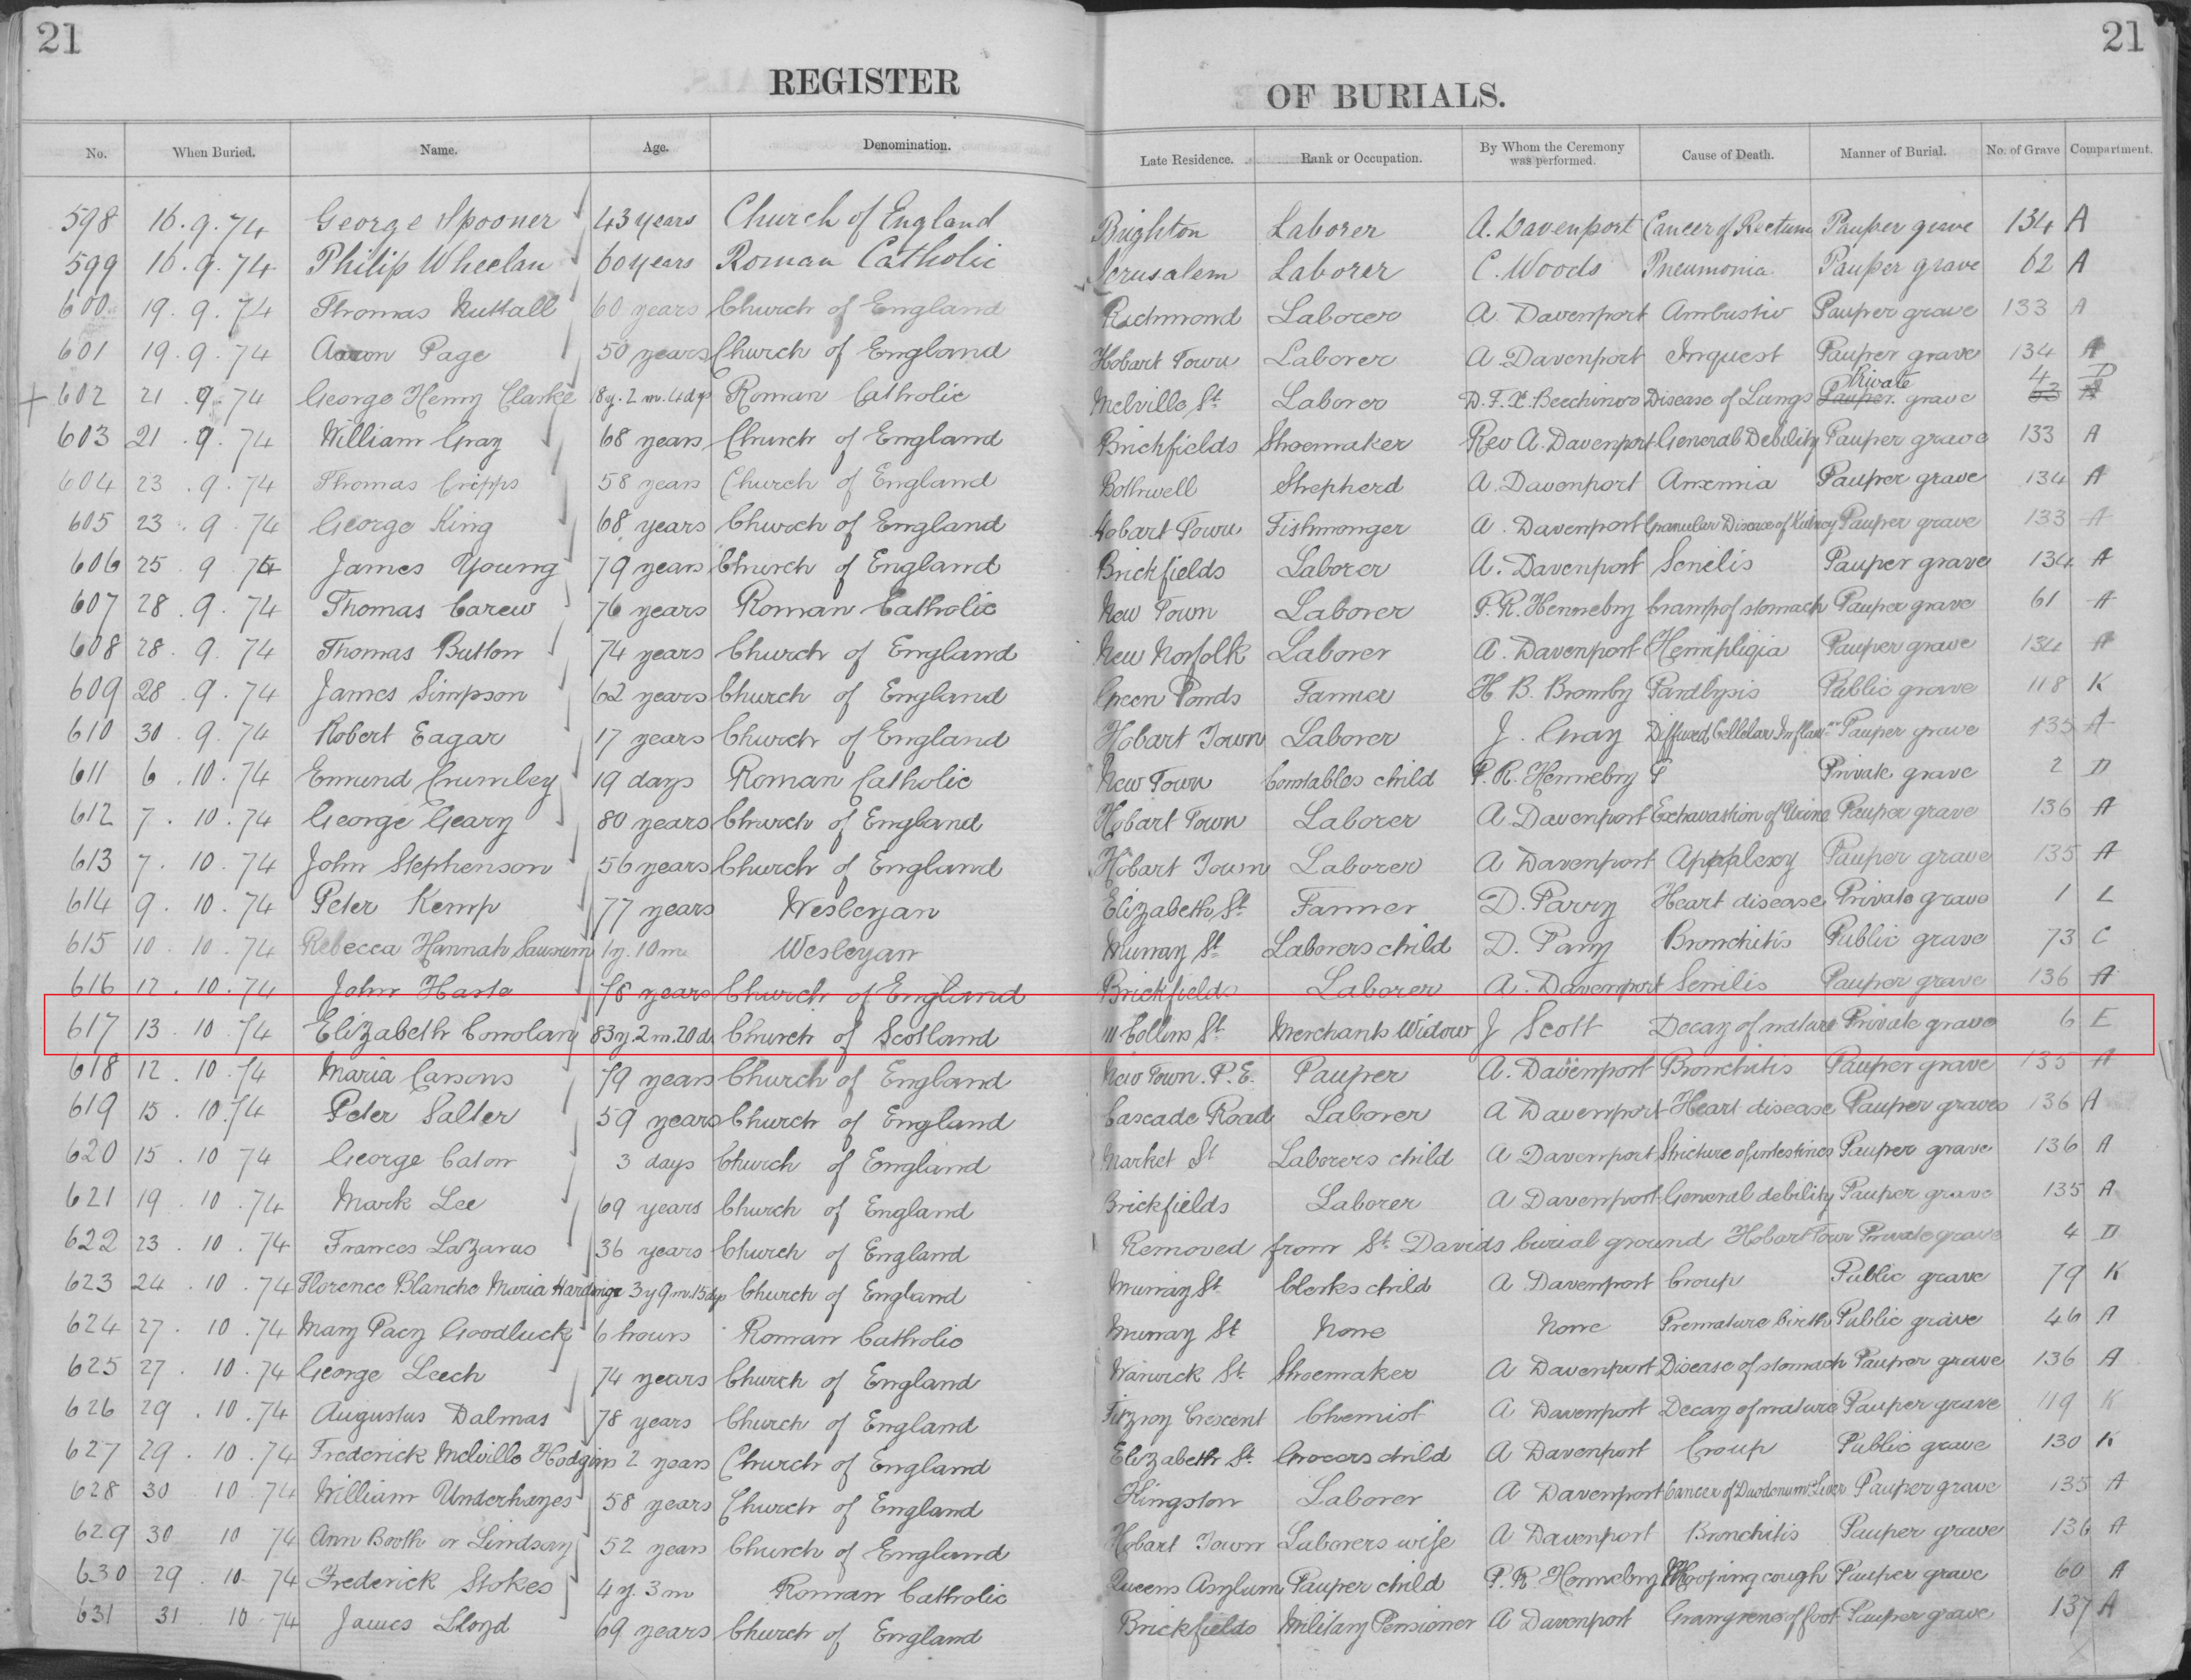 21
21
REGISTER OF BURIALS.
No. When Buried. Name. Age. Denomination. Late Residence. Rank or Occupation. By Whom the Ceremony was performed. Cause of Death. Manner of Burial. No. of Grave Compartment.
598 16.9.74 George Spooner 43 years Church of England Brighton Laborer A. Davenport Cancer of Rectum Pauper grave 134 A
599 16.9.74 Philip Wheelan 60 years Roman Catholic Jerusalem Laborer C. Woods Pneumonia Pauper grave 62 A
600 19.9.74 Thomas Nuttall 60 years Church of England Richmond Laborer A. Davenport Ambustio Pauper grave 133 A
601 19.9.74 Aaron Page 50 years Church of England Hobart Town Laborer A. Davenport Inquest Pauper grave 134 A
+ 602 21.9.74 George Henry Clarke 8y. 2m. 4dys Roman Catholic Melville St Laborer D. F. X. Beechinor Disease of Lungs Pauper Private grave 4 D
603 21.9.74 William Gray 68 years Church of England Brickfields Shoemaker Rev A. Davenport General Debility Pauper grave 133 A
604 23.9.74 Thomas Cripps 58 years Church of England Bothwell Shepherd A. Davenport Anemia Pauper grave 134 A
605 23.9.74 George King 68 years Church of England Hobart Town Fishmonger A. Davenport Granular Disease of Kidney Pauper grave 133 A
606 25.9.74 James Young 79 years Church of England Brickfields Laborer A. Davenport Senilis Pauper grave 134 A
607 28.9.74 Thomas Carew 76 years Roman Catholic New Town Laborer P. R. Hennebry Cramp of stomach Pauper grave 61 A
608 28.9.74 Thomas Button 74 years Church of England New Norfolk Laborer A. Davenport Hemipligia Pauper grave 134 A
609 28.9.74 James Simpson 62 years Church of England Green Ponds Farmer H. B. Bromby Paralysis Public grave 118 K
610 30.9.74 Robert Eagar 17 years Church of England Hobart Town Laborer J. Gray Diffused Cellular Inflam Pauper grave 135 A
611 6.10.74 Emund Crumley 19 days Roman Catholic New Town Constables child P. R. Hennebry P Private grave 2 D
612 7.10.74 George Geary 80 years Church of England Hobart Town Laborer A. Davenport Exhavastion of Urine Pauper grave 136 A
613 7.10.74 John Stephenson 56 years Church of England Hobart Town Laborer A Davenport Applexy Pauper grave 135 A
614 9.10.74 Peter Kemp 77 years Wesleyan Elizabeth St Farmer D. Parry Heart disease Private grave 1 L
615 10.10.74 Rebecca Hannah 1y. 10m Wesleyan Murray St Laborers child D. Parry Bronchitis Public grave 73 C
616 12.10.74 John Haste 78 years Church of England Brickfields Laborer A. Davenport Senilis Pauper grave 136 A
617 13.10.74 Elizabeth Conolan 83y. 2m. 20d Church of Scotland 111 Collins St Merchants Widow J Scott Decay of nature Private grave 6 E
618 12.10.74 Maria Carsons 79 years Church of England New Town. P. E. Pauper A. Davenport Bronchitis Pauper grave 135 A
619 15.10.74 Peter Salter 59 years Church of England Cascade Road Laborer A Davenport Heart disease Pauper graves 136 A
620 15.10 74 George Caton 3 days Church of England Market St Laborers child A Davenport Stricture of intestines Pauper grave 136 A
621 19.10.74 Mark Lee 69 years Church of England Brickfields Laborer A Davenport General debility Pauper grave 135 A
622 23.10.74 Frances Lazarus 36 years Church of England Removed from St Davids burial ground Hobart Town Private grave 4 D
623 24.10.74 Florence Blanche Maria Hardinge 3y 9m. 15dys Church of England Murray St Clerks child A Davenport Croup Public grave 79 K
624 27.10.74 Mary Pacy Goodluck 6 hours Roman Catholic Murray St None None Premature birth Public grave 46 A
625 27.10.74 George Leech 74 years Church of England Warwick St Shoemaker A Davenport Disease of stomach Pauper grave 136 A
626 29.10.74 Augustus Dalmas 78 years Church of England Fitzroy Crescent Chemist A Davenport Decay of nature Pauper grave 119 K
627 29.10.74 Frederick Melville Hodgins 2 years Church of England Elizabeth St Grocers child A Davenport Croup Public grave 130 K
628 30 10.74 William Underhayes 58 years Church of England Kingston Laborer A Davenport Cancer of Duodenum & Liver Pauper grave 135 A
629 30 10 74 Ann Booth or Lindsay 52 years Church of England Hobart Town Laborers wife A Davenport Bronchitis Pauper grave 136 A
630 29.10.74 Frederick Stokes 4y. 3m Roman Catholic Queens Asylum Pauper child P. R Hennebry Whooping cough Pauper grave 60 A
631 31.10.74 James Lloyd 69 years Church of England Brickfields Military Pensioner A Davenport Grangrene of foot Pauper grave 137 A